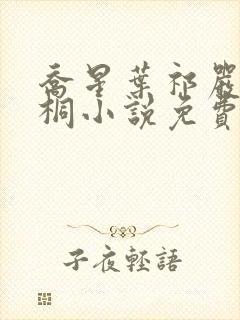 喬星葉祁嚴
桐小說免費
子夜輕語